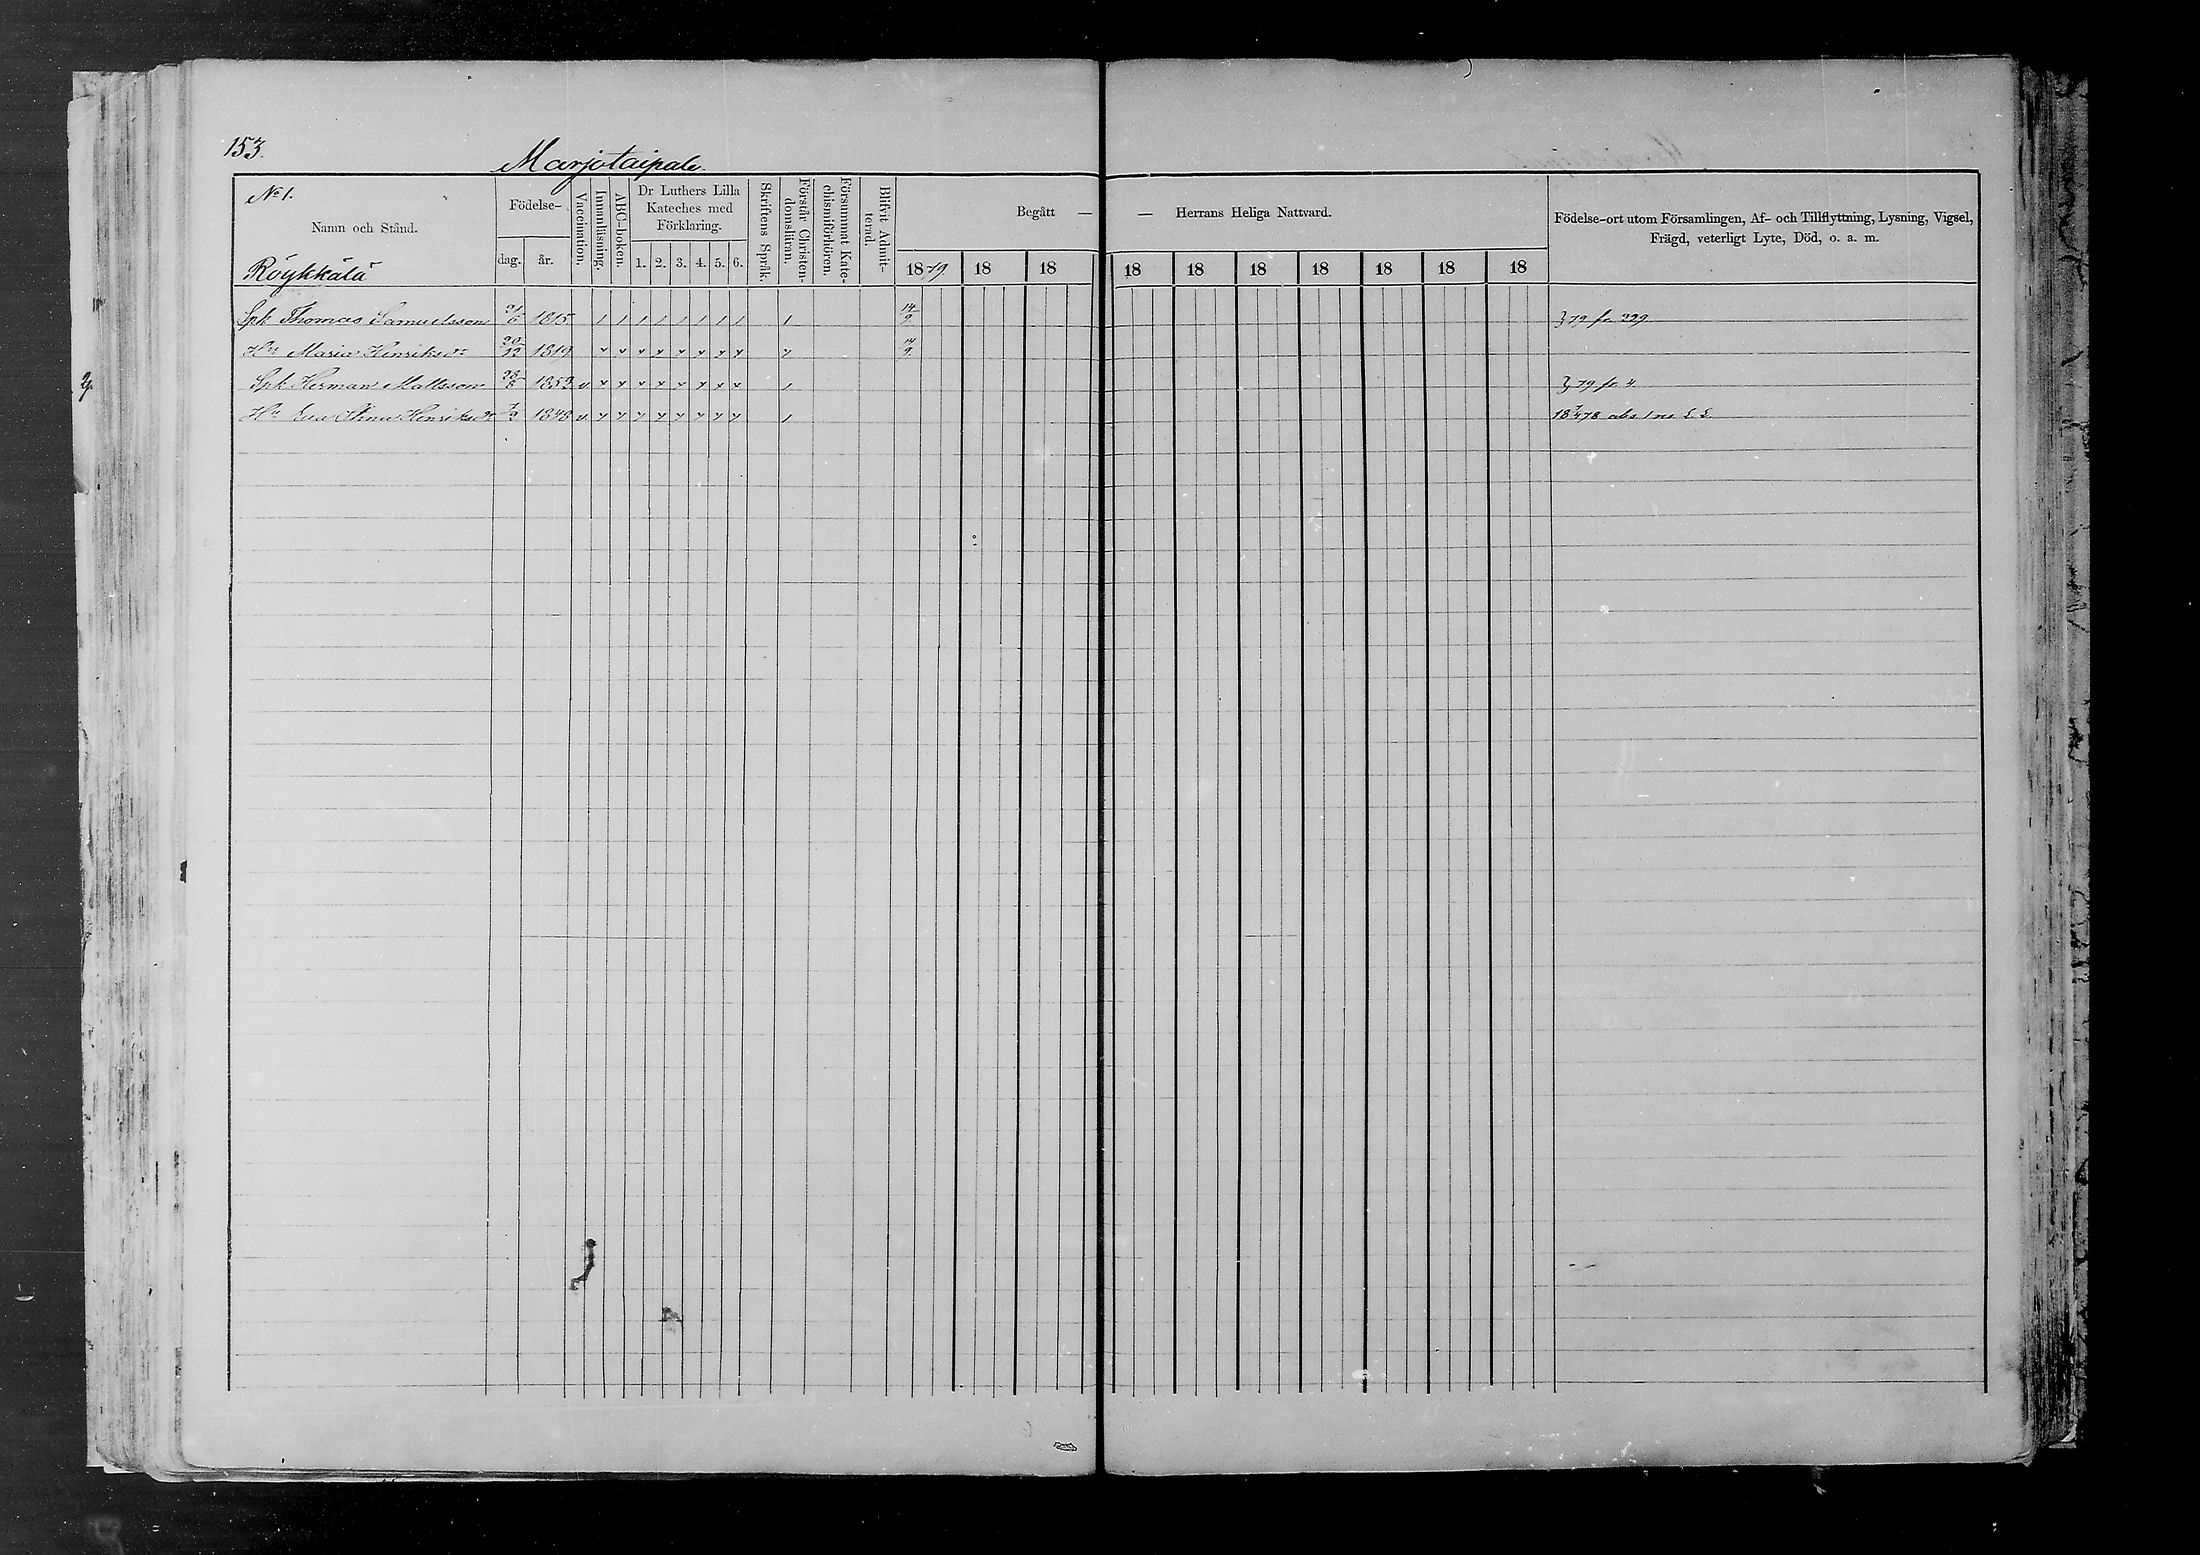 153.
Marjotaipale.
No 1.
Namn och Stånd.
Röykkälä
Födelse-
dag. år.
Vaccination.
Innanläsning.
ABC-boken.
Dr Luthers Lilla Kateches med Förklaring.
1. 2. 3. 4. 5. 6.
Skriftens Språk.
Förstår Christendomsläran.
Försummat Katechismiförhören.
Blifvit Admitterad.
Begått — — Herrans Heliga Nattvard.
1879. 18 18 18 18 18 18 18 18 18
Födelse-ort utom Församlingen, Af- och Tillflyttning, Lysning, Vigsel,
Frägd, veterligt Lyte, Död, o. a. m.
Spk Thomas Samuelsson 1815 14/9 79 fr 229
Hu Maria Henriksdr 20/12 1819 14/9
Spk Herman Mattsson 1853 v 79 fr 4.
Hu Eva Stina Henriksdr 1848 v abs